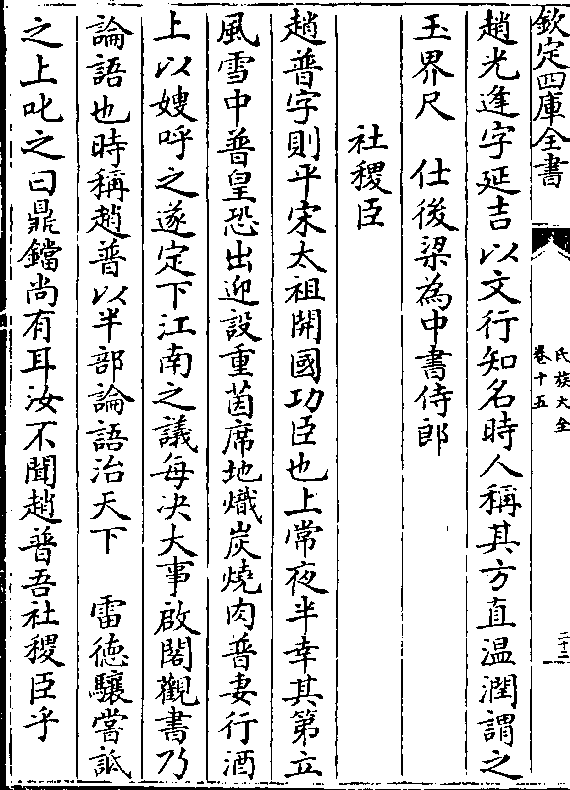 欽定四庫全書
氏族大全
卷十五
二十三
趙光逢字延吉以文行知名時人稱其方直温潤謂之
玉界尺　仕後梁為中書侍郎
社稷臣
趙普字則平宋太祖開國功臣也上常夜半幸其第立
風雪中普皇恐出迎設重茵席地熾炭燒肉普妻行酒
上以嫂呼之遂定下江南之議每决大事啟閤觀書乃
論語也時稱趙普以半部論語治天下　雷德驤嘗詆
之上叱之曰鼎鐺尚有耳汝不聞趙普吾社稷臣乎